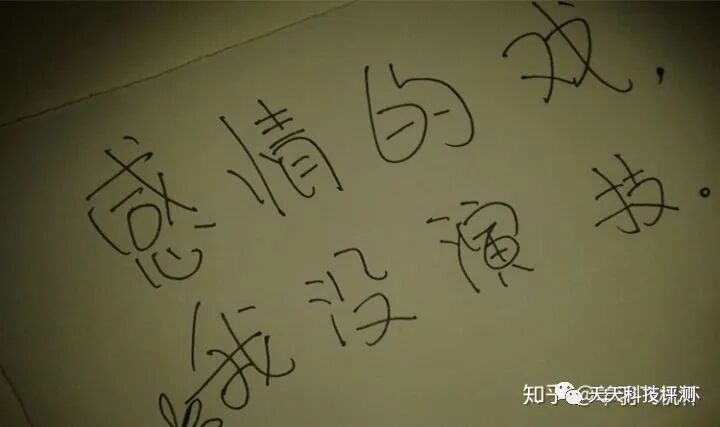 感情的戏,
我没演技.。
知乎
天天科技评测